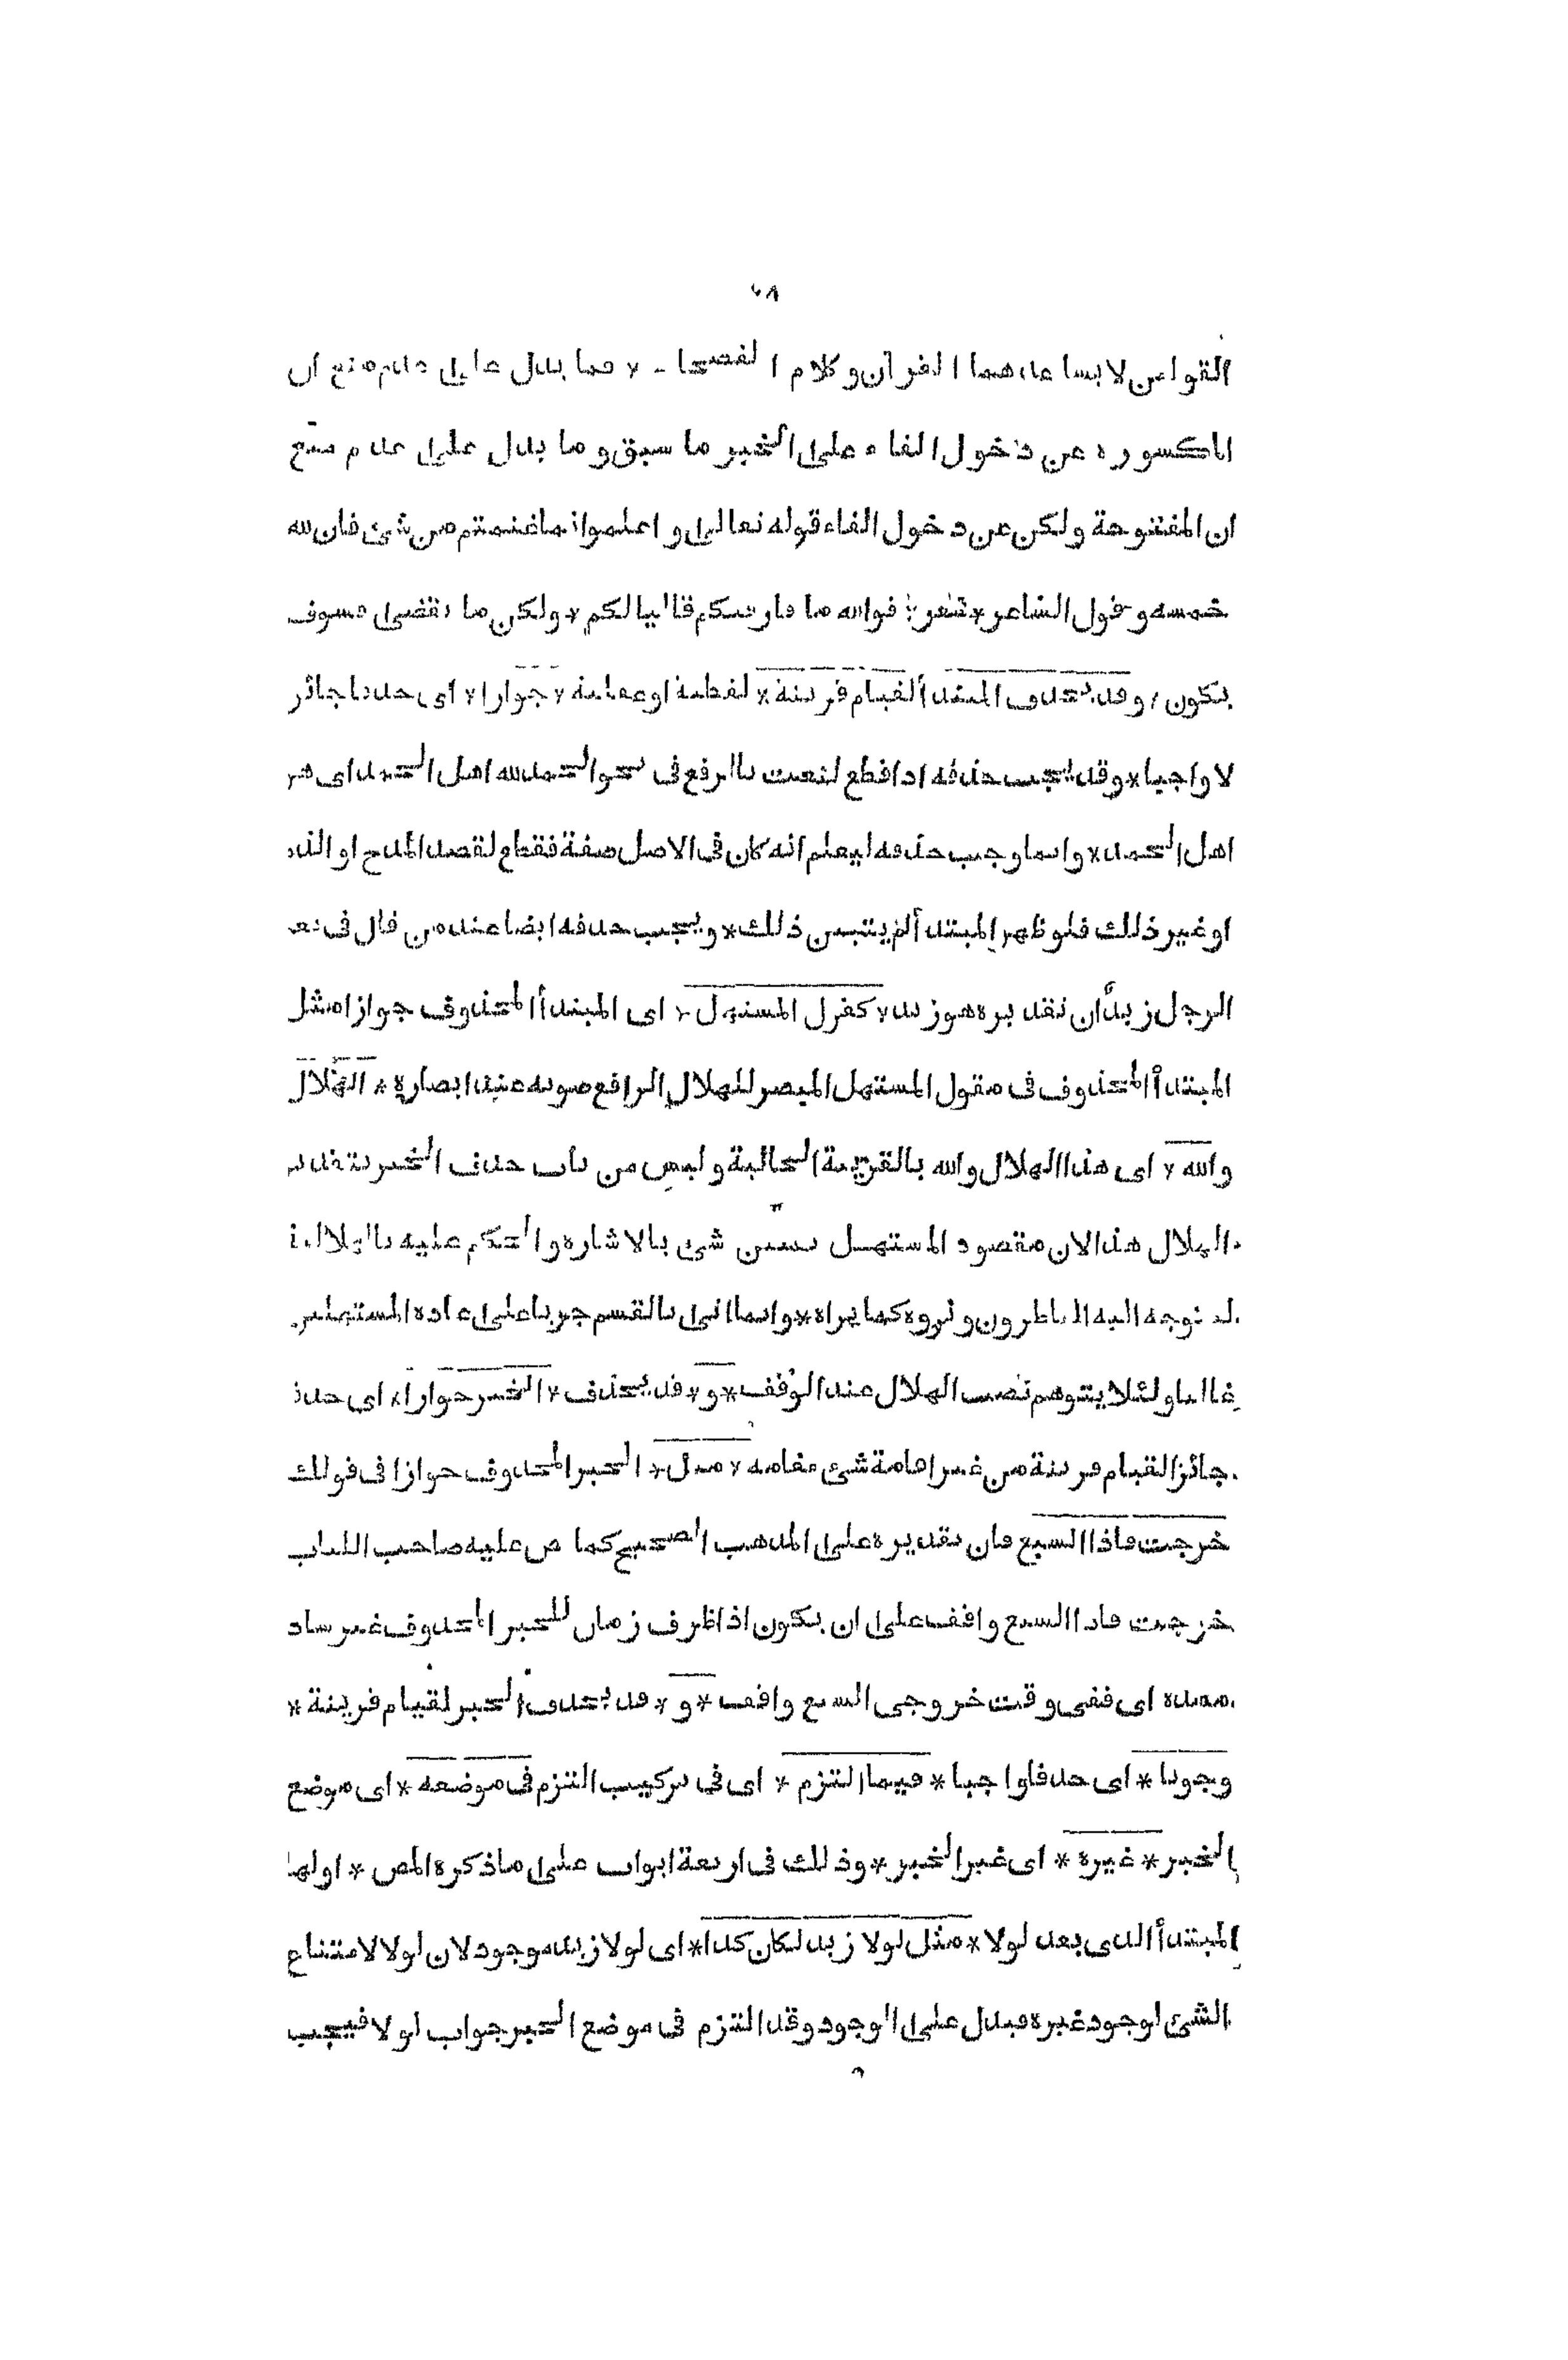 ٦٨
القولين لا يساعدهما القرآن وكلام الفصحا * فما يدل على عدم منع ان
المكسوره عن دخول الفاء على الخبر ما سبق وما يدل على عدم منع
ان المفتوحة ولكن عن دخول الفاء قوله تعالى واعلموا انما غنمتم من شئ فان لله
خمسه وقول الشاعر * شعر * فوالله ما فارقتكم قاليا لكم * ولكن ما يقضى فسوف
يكون / وقد يحذف المبتدأ لقيام قرينة * لفظية او عقلية * جوازا * اى حذفا جائز
لا واجبا * وقد يجب حذفه اذا قطع لنعت بالرفع فى نحو الحمد لله اهل الحمد اى هو
اهل الحمد * وانما وجب حذفه ليعلم انه كان فى الاصل صفة فقطع لقصد المدح او الذم
او غير ذلك فلو ظهر المبتدأ لم يتبين ذلك * ويجب حذفه ايضا عند من قال فى نعم
الرجل زيد ان تقديره هو زيد * كقول المستهل * اى المبتدأ المحذوف جوازا مثل
المبتدأ المحذوف فى مقول المستهل المبصر للهلال الرافع صوته عند ابصاره * الهلال
والله * اى هذا الهلال والله بالقرينة الحالية وليس من باب حذف الخبر بتقدير
الهلال هذا لان مقصود المستهل تعيين شئ بالاشاره والحكم عليه بالهلالية
ليتوجه اليه الناظرون ويروه كما يراه * وانما اتى بالقسم جريا على عاده المستهلين
غالبا ولئلا يتوهم نصب الهلال عند الوقف * و * قد يحذف * الخبر جوازا * اى حذفا
جائزا لقيام قرينة من غير اقامة شئ مقامه * مثل * الخبر المحذوف جوازا فى قولك
خرجت فاذا السبع فان تقديره على المذهب الصحيح كما نص عليه صاحب اللباب
خرجت فاذا السبع واقف على ان يكون اذا ظرف زمان للخبر المحذوف غير ساد
مسده اى ففى وقت خروجى السبع واقف * و * قد يحذف الخبر لقيام قرينة *
وجوبا * اى حذفا واجبا * فيما التزم * اى فى تركيب التزم فى موضعه * اى موضع
الخبر * غيره * اى غير الخبر * وذلك فى اربعة ابواب على ما ذكره المص * اولها
المبتدأ الذى بعد لولا * مثل لولا زيد لكان كذا * اى لولا زيد موجود لان لولا لامتناع
الشئ لوجود غيره فيدل على الوجود وقد التزم فى موضع الخبر جواب لولا فيجب